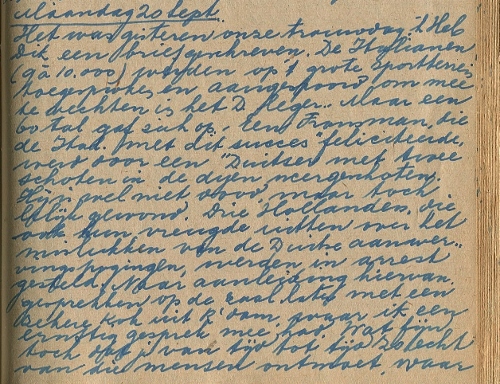 Maandag 20 Sept.
Het was gisteren onze trouwdag. 'k Heb
Dik een brief geschreven. De Italianen
(± à 10.000) werden op 't grote Sportterrein
toegesproken en aangespoord om mee
te vechten in het D. leger. Maar een
60 tal gaf zich op. Een Fransman, die
de Ital. met dit succes feliciteerde,
werd door een Duitser met twee
schoten in de dijen neergeschoten.
Hij viel niet dood, maar toch
lelijk gewond. Drie Hollanders, die
ook hun vreugde uitten over het
mislukken van de Duitse aanwer-
vingspogingen, werden in arrest
gesteld. Naar aanleiding hiervan
gesprekken op de zaal, later met een
Kok uit R'dam, waar ik een
ernstig gesprek mee had. Wat fijn
toch dat j' van tijd tot tijd zo echt
van die mensen ontmoet, waar